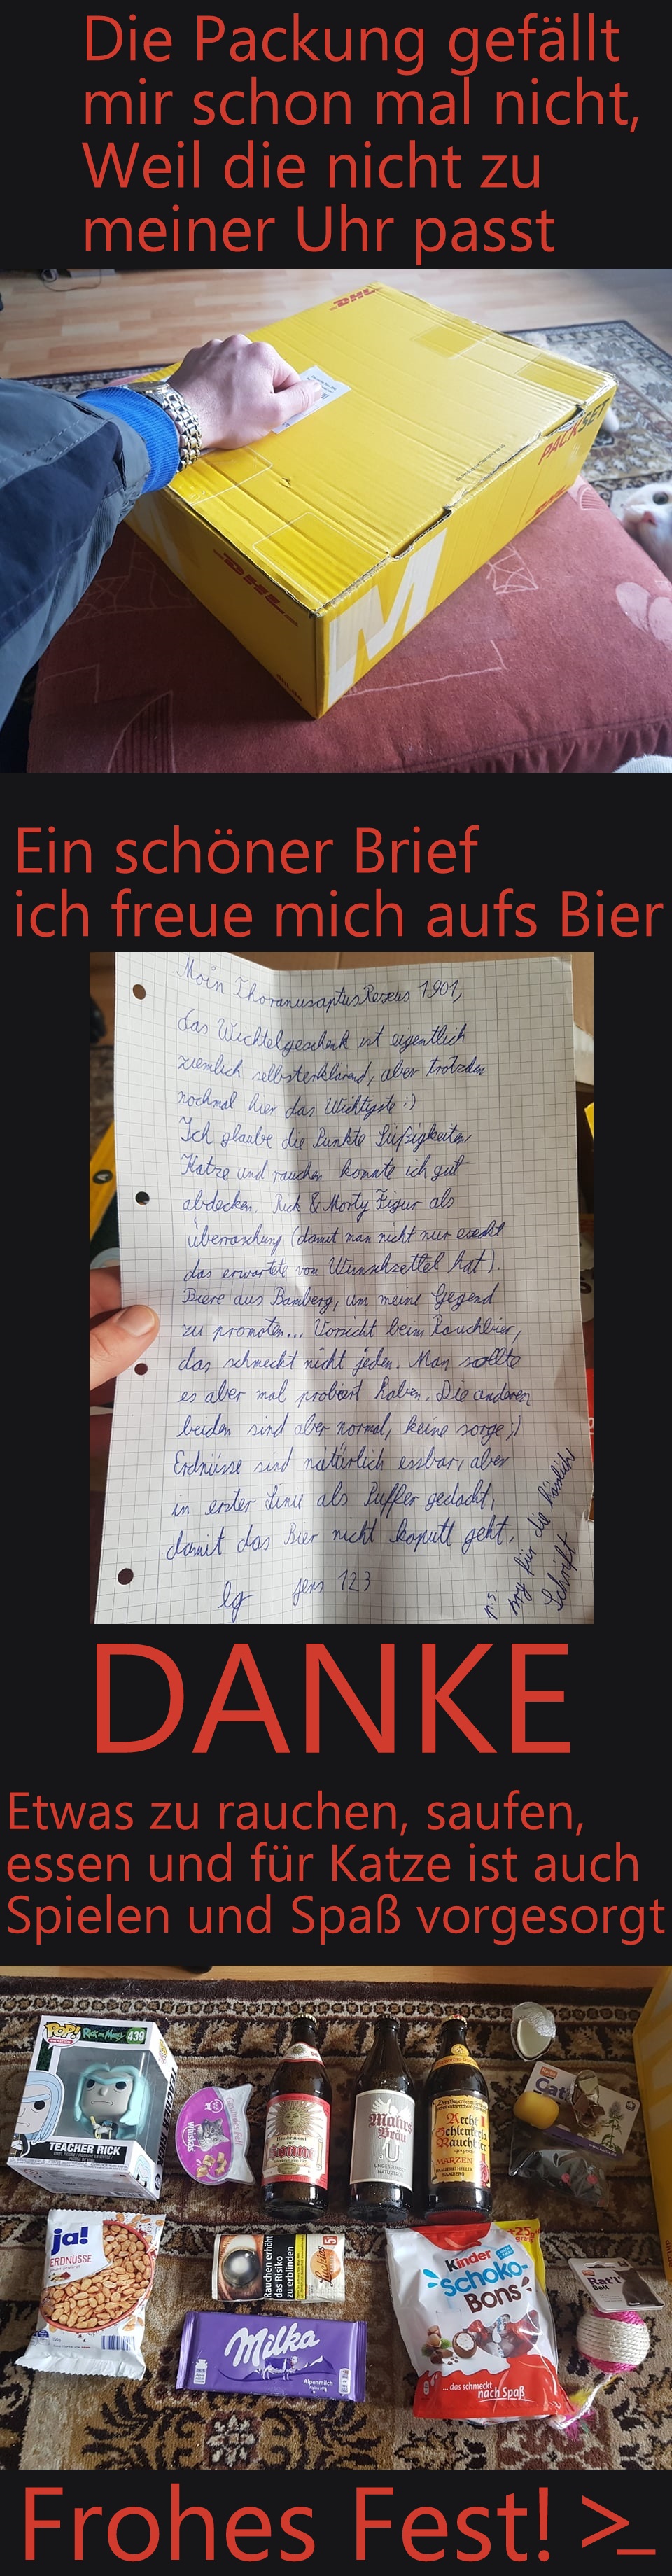 Die Packung gefällt
mir schon mal nicht,
Weil die nicht zu
meiner Uhr passt
DHL
PACKSET
DHL
M
Ein schöner Brief
ich freue mich aufs Bier
Moin ThoranusaptusRexeus 1901,
das Wichtelgeschenk ist eigentlich
ziemlich selbsterklärend, aber trotzdem
nochmal hier das Wichtigste :)
Ich glaube die Punkte Süßigkeiten,
Katze und rauchen konnte ich gut
abdecken. Rick & Morty Figur als
überraschung (damit man nicht nur exakt
das erwartete vom Wunschzettel hat).
Biere aus Bamberg, um meine Gegend
zu promoten... Vorsicht beim Rauchbier,
das schmeckt nicht jeden. Man sollte
es aber mal probiert haben. Die anderen
beiden sind aber normal, keine sorge ;)
Erdnüsse sind natürlich essbar, aber
in erster Linie als Puffer gedacht,
damit das Bier nicht kaputt geht.
lg jens 123
p.s. sry für die hässliche
Schrift
DANKE
Etwas zu rauchen, saufen,
essen und für Katze ist auch
Spielen und Spaß vorgesorgt
POP!
Rick and Morty
439
TEACHER RICK
Whiskas
Sonne
Mahrs
Bräu
U
UNGESPUNDET
Aecht
Schlenkerla
Rauchbier
MÄRZEN
BAMBERG
Cat
ja!
ERDNÜSSE
Rauchen erhöht
das Risiko
zu erblinden
Milka
Alpenmilch
+25g
Kinder
Schoko-
Bons
... das schmeckt
nach Spaß
Rat't
Ball
Frohes Fest! >_